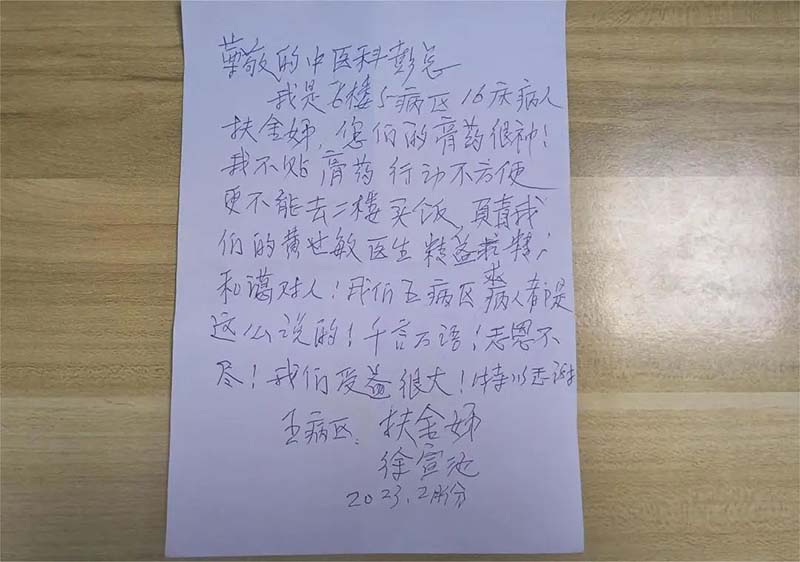 尊敬的中医科彭总
我是6楼5病区16床病人
扶金娣,您们的膏药很神!
我不贴膏药行动不方便
更不能去二楼买饭,負责我
们的黄世敏医生精益求精;
和蔼对人!我们五病区病人都是
这么说的!千言万语!志恩不
尽!我们受益很大!特以志谢
五病区:扶金娣
徐宣池
2023.2月份